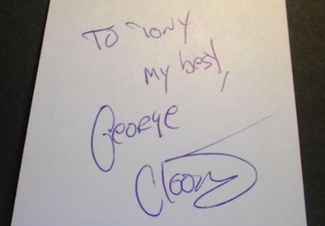 To Tony
My best,
George
Clooney